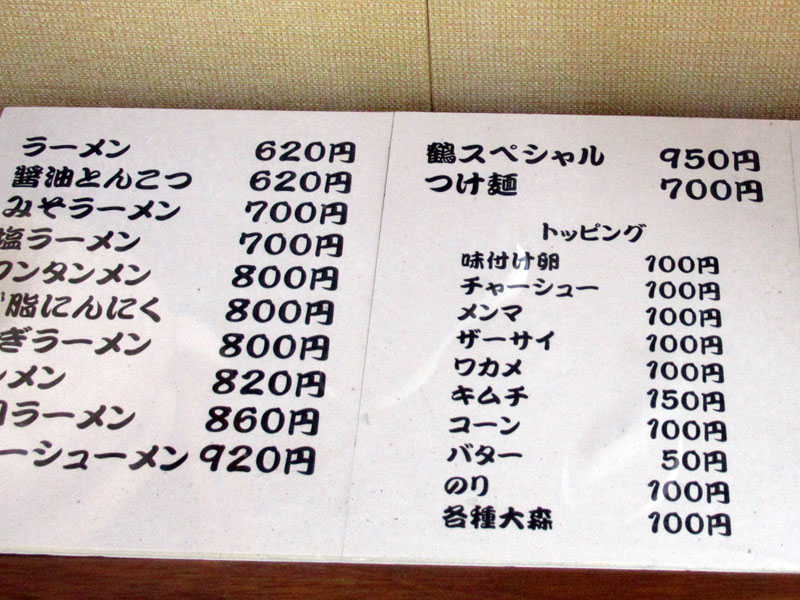 ラーメン 620円
醤油とんこつ 620円
みそラーメン 700円
塩ラーメン 700円
ワンタンメン 800円
脂にんにく 800円
ぎラーメン 800円
メン 820円
ラーメン 860円
ーシューメン 920円
鶴スペシャル 950円
つけ麺 700円
トッピング
味付け卵 100円
チャーシュー 100円
メンマ 100円
ザーサイ 100円
ワカメ 100円
キムチ 150円
コーン 100円
バター 50円
のり 100円
各種大森 100円